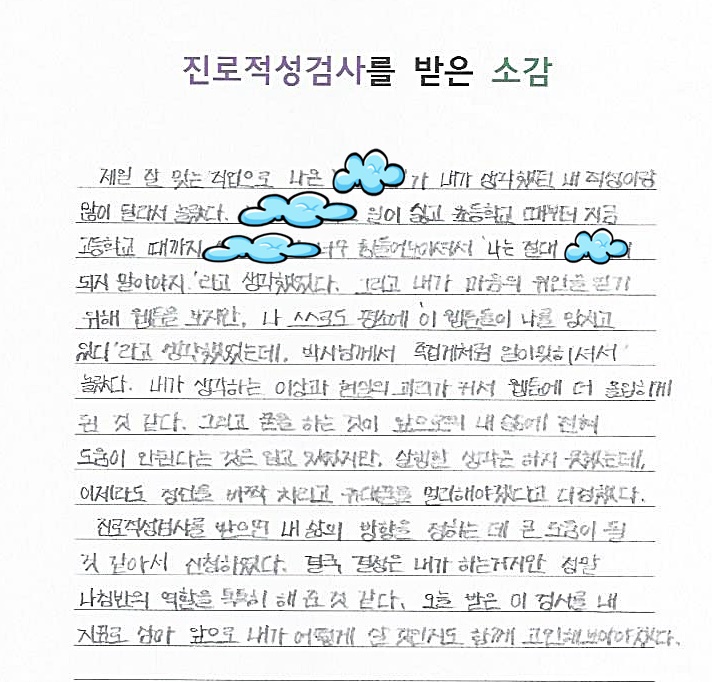 진로적성검사를 받은 소감
제일 잘 맞는 직업으로 나온 가 내가 생각했던 내 적성이랑
많이 달라서 놀랐다. 일이 싫고 초등학교 때부터 지금
고등학교 때까지 너무 힘들어 '나는 절대
되지 말아야지.'라고 생각했었다. 그리고 내가 마음의 위안을 얻기
위해 웹툰을 보지만, 나 스스로도 평소에 '이 웹툰들이 나를 망치고
있다'라고 생각했었는데, 박사님께서 족집게처럼 알아맞히셔서
놀랐다. 내가 생각하는 이상과 현실의 괴리가 커서 웹툰에 더 몰입하게
된 것 같다. 그리고 꿈을 하는 것이 앞으로의 내 삶에 전혀
도움이 안된다는 것은 알고 있었지만, 실행할 생각은 하지 못했는데,
이제라도 정신을 바짝 차리고 휴대폰을 멀리해야겠다고 다짐했다.
진로적성검사를 받으면 내 삶의 방향을 정하는 데 큰 도움이 될
것 같아서 신청하였다. 결국 결정은 내가 하는거지만 정말
나침반의 역할을 톡톡히 해 준 것 같다. 오늘 받은 이 검사를 내
지표로 삼아 앞으로 내가 어떻게 살 것인지도 함께 고민해보아야겠다.